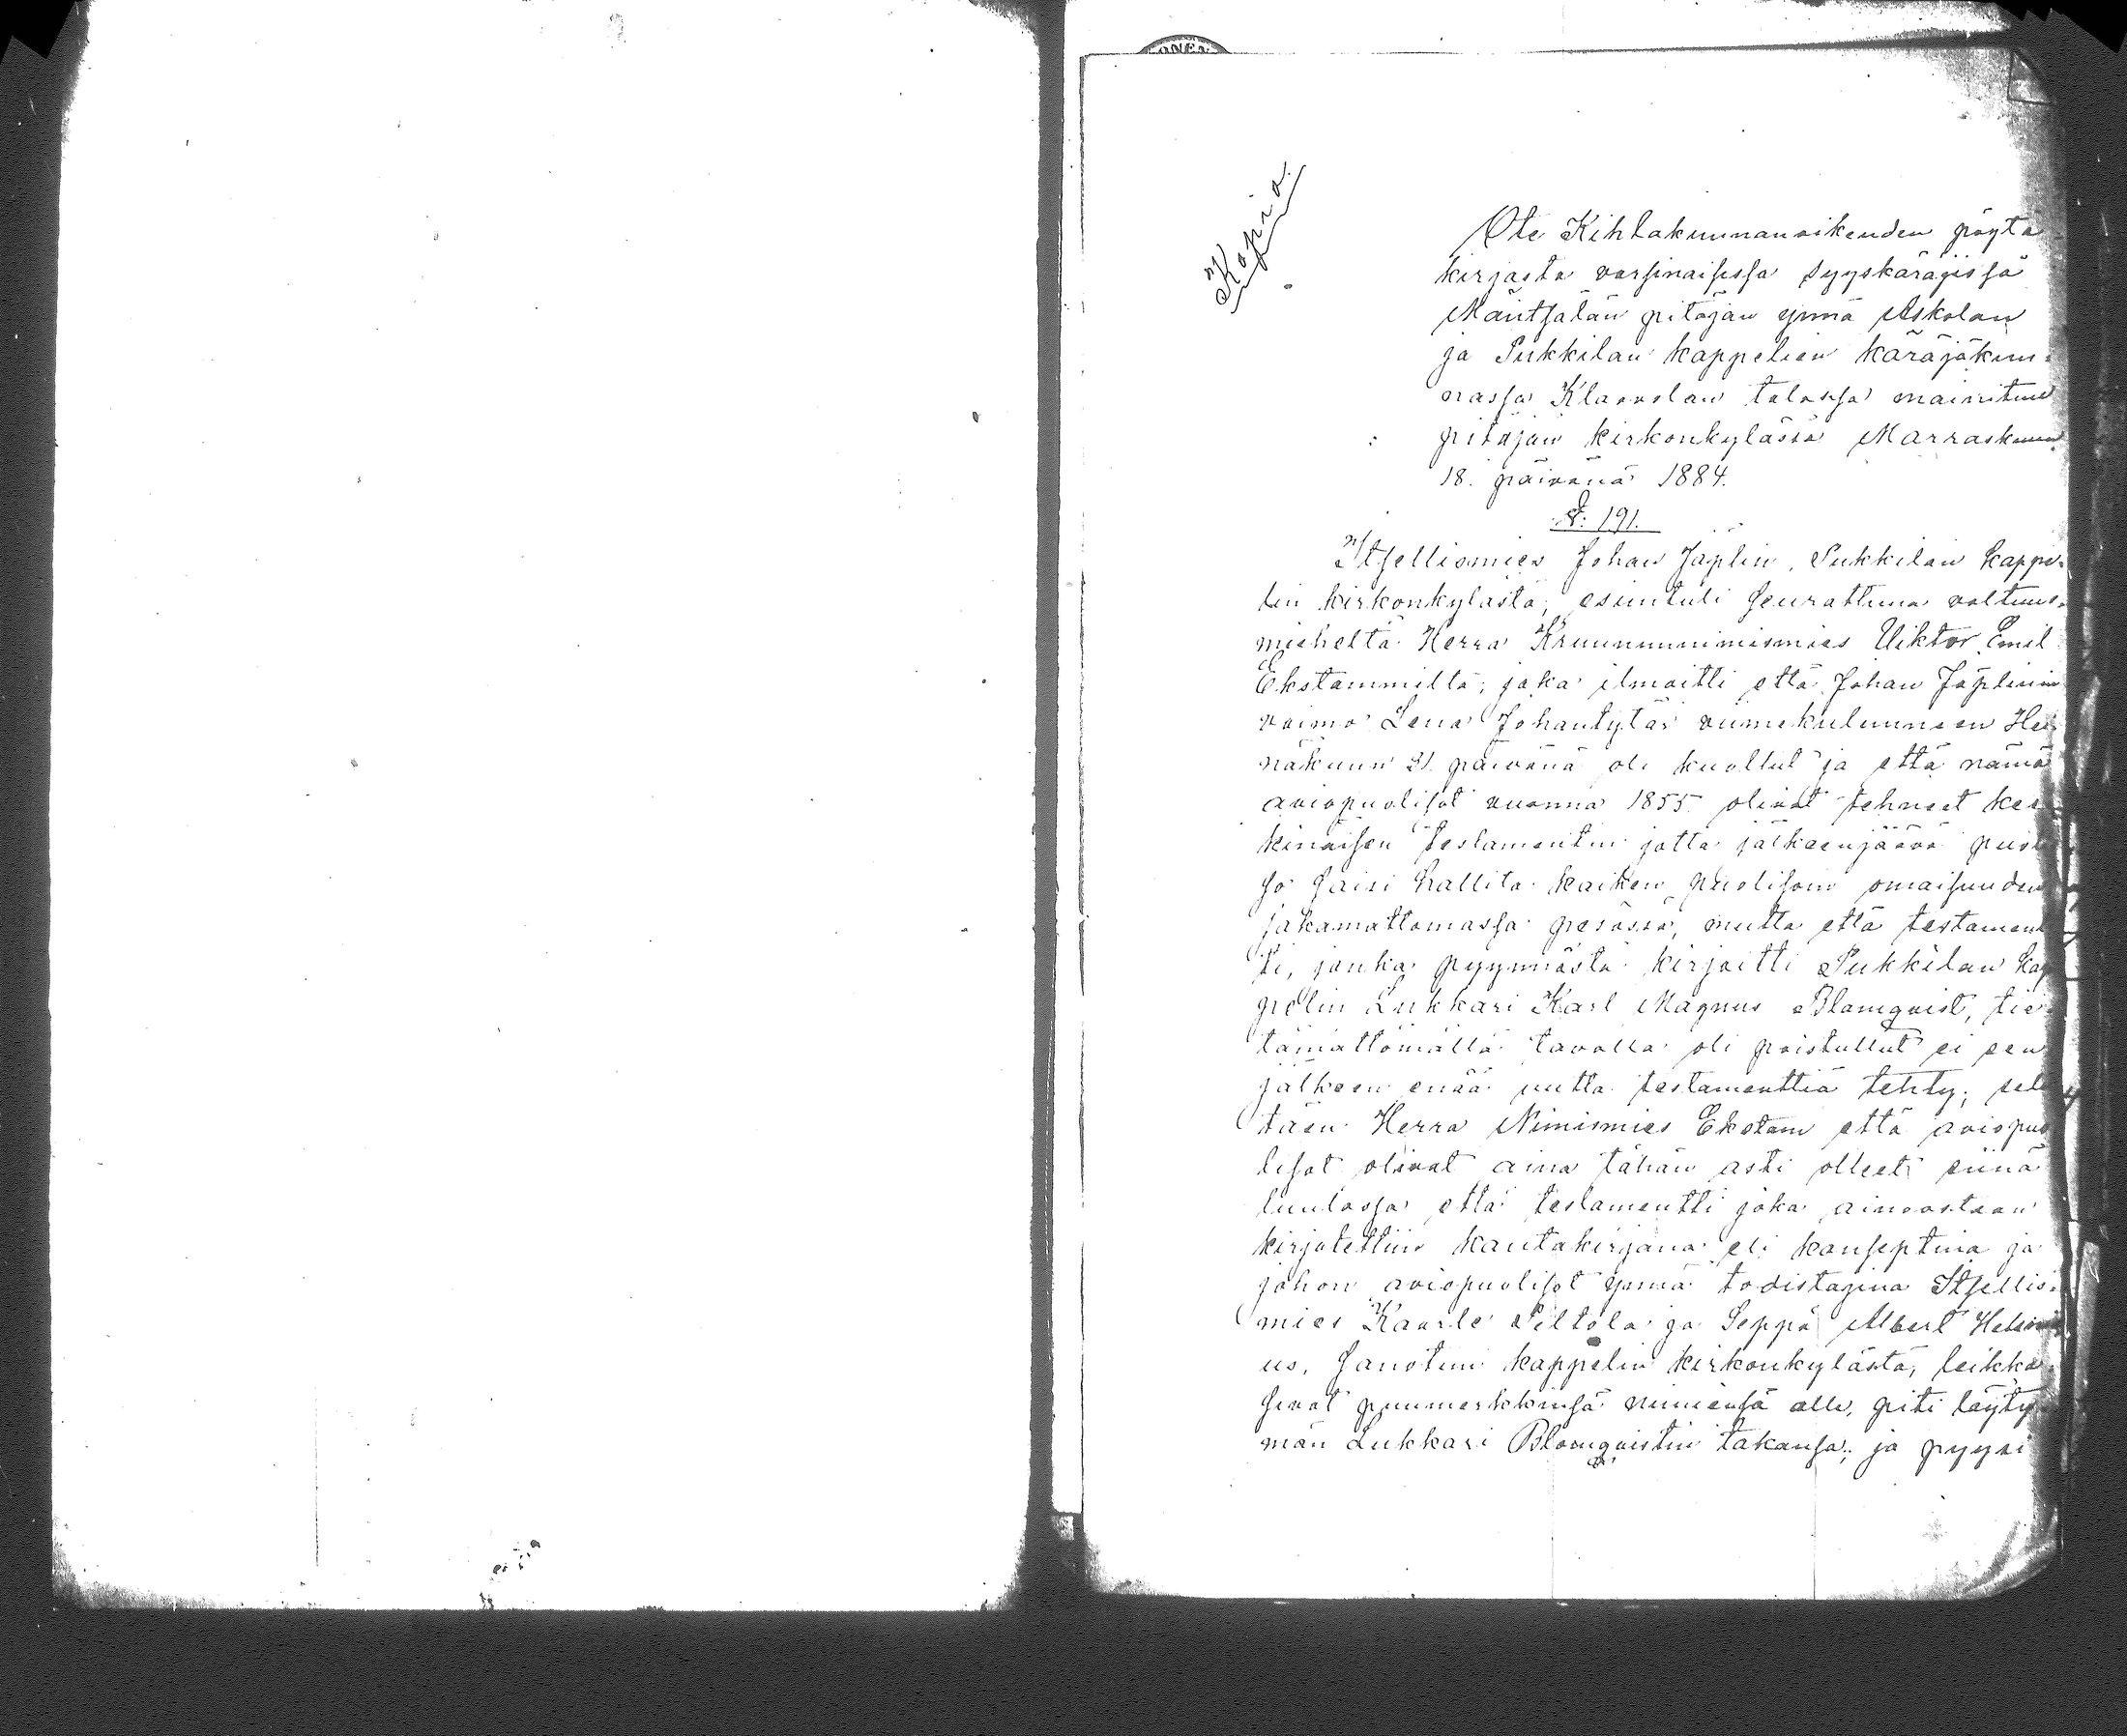 Kopia.
Ote Kihlakunnanoikeuden pöytä
kirjasta varsinaisissa syyskäräjissä
Mäntsälän pitäjän ynnä Askolan
ja Pukkilan kappelien käräjäkun-
nassa Klaavolan talossa mainitun
pitäjän kirkonkylässä Marraskuun
18. päivänä 1884.
§: 191.
Itsellismies Johan Jäplin, Pukkilan kappe-
lin kirkonkylästä, esiintuli seurattuna valtuus-
mieheltä Herra Kruununnimismies Viktor Emil
Ekstammilta, joka ilmoitti että Johan Jäplinin
vaimo Lena Johantytär viimekuluneen Hei-
näkuun 31. päivänä oli kuollut ja että nämä
aviopuolisot vuonna 1855 olivat tehneet kes-
kinäisen testamentin jotta jälkeenjäävä puoli
so saisi hallita kaiken puolisoin omaisuuden
jakamattomassa pesässä, mutta että testament
ti, jonka pyynnöstä kirjoitti Pukkilan kap
pelin Lukkari Karl Magnus Blomqvist, tie-
tämättömällä tavalla oli poistullut ei sen
jälkeen enää uutta testamenttia tehty; seli
täen Herra Nimismies Ekstam että aviopuo
lisot olivat aina tähän asti olleet siinä
luulossa että testamentti joka ainoastaan
kirjotettiin kantakirjana eli konseptina ja
johon aviopuolisot ynnä todistajina Itsellis-
mies Kaarle Peltola ja Seppä Albert Helenius
us, sanotun kappelin kirkonkylästä, leikka-
sivat puumerkkinsä nimiensä alle, piti löyty
män Lukkari Blomqvistin takansa; ja pyysi